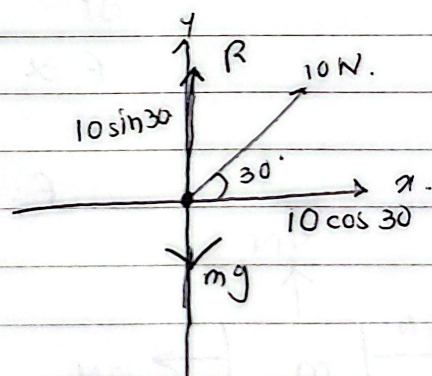 y
R
10 N.
10 sin 30
30°
x.
10 cos 30
mg